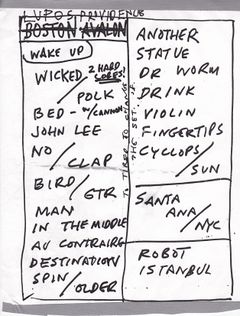 LUPOS PROVIDENCE
BOSTON AVALON
WAKE UP
WICKED 2 HARD
/POLK
BED - W/CANNON
JOHN LEE
NO
/CLAP
BIRD
/GTR
MAN
IN THE MIDDLE
AU CONTRAIRE
DESTINATION
SPIN
/OLDER
TO TIRED TO CHANGE
THE SET.
ANOTHER
STATUE
DR WORM
DRINK
VIOLIN
FINGERTIPS
CYCLOPS
/SUN
SANTA
ANA/
NYC
ROBOT
ISTANBUL